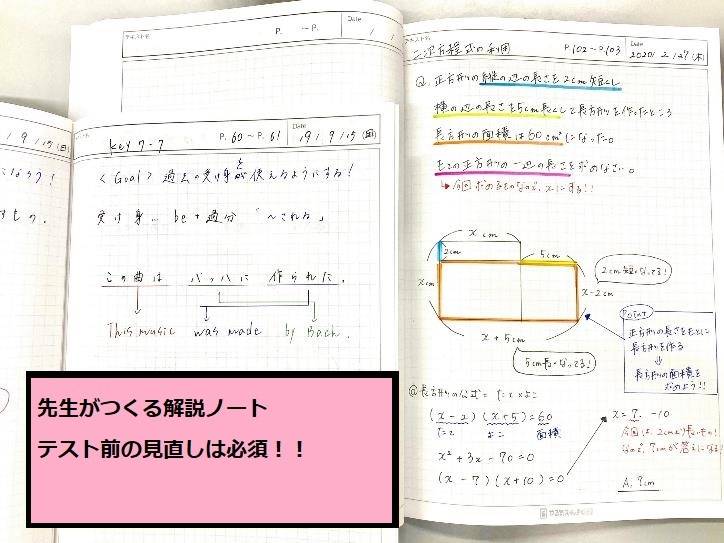 テキスト名
P. ～P.
Date
/ /
19/9/15(日)
なろう!
すもの。
key 7-7
P.60～P.61
Date
19/9/15(日)
<Goal> 過去の受け身を使えるようにする!
受け身… be+過分「～される」
この曲は バッハに 作られた.
This music was made by Bach.
テキスト名
二次方程式の利用
P.102～P.103
Date
2020/2/27(木)
Q. 正方形の縦の辺の長さを2cm短くし
横の辺の長さを5cm長くして長方形を作ったところ
長方形の面積は60cm²になった。
もとの正方形の一辺の長さを求めなさい。
↳今回求めるものなので、xにする!!
x cm
2cm
5cm
x cm
x-2cm
x+5cm
2cm短くなってる!
5cm長くなってる!
Point
正方形の長さをもとに
長方形を作る
↓
長方形の面積を
求めよう!!
◎長方形の公式=たて×よこ
(x-2)(x+5)=60
たて よこ 面積
x²+3x-70=0
(x-7)(x+10)=0
x=7, -10
今回は、2cmより長いもの!
なので、7cmが答えになる!
A. 7cm
先生がつくる解説ノート
テスト前の見直しは必須！！